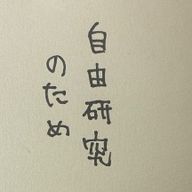 自由研究
のため